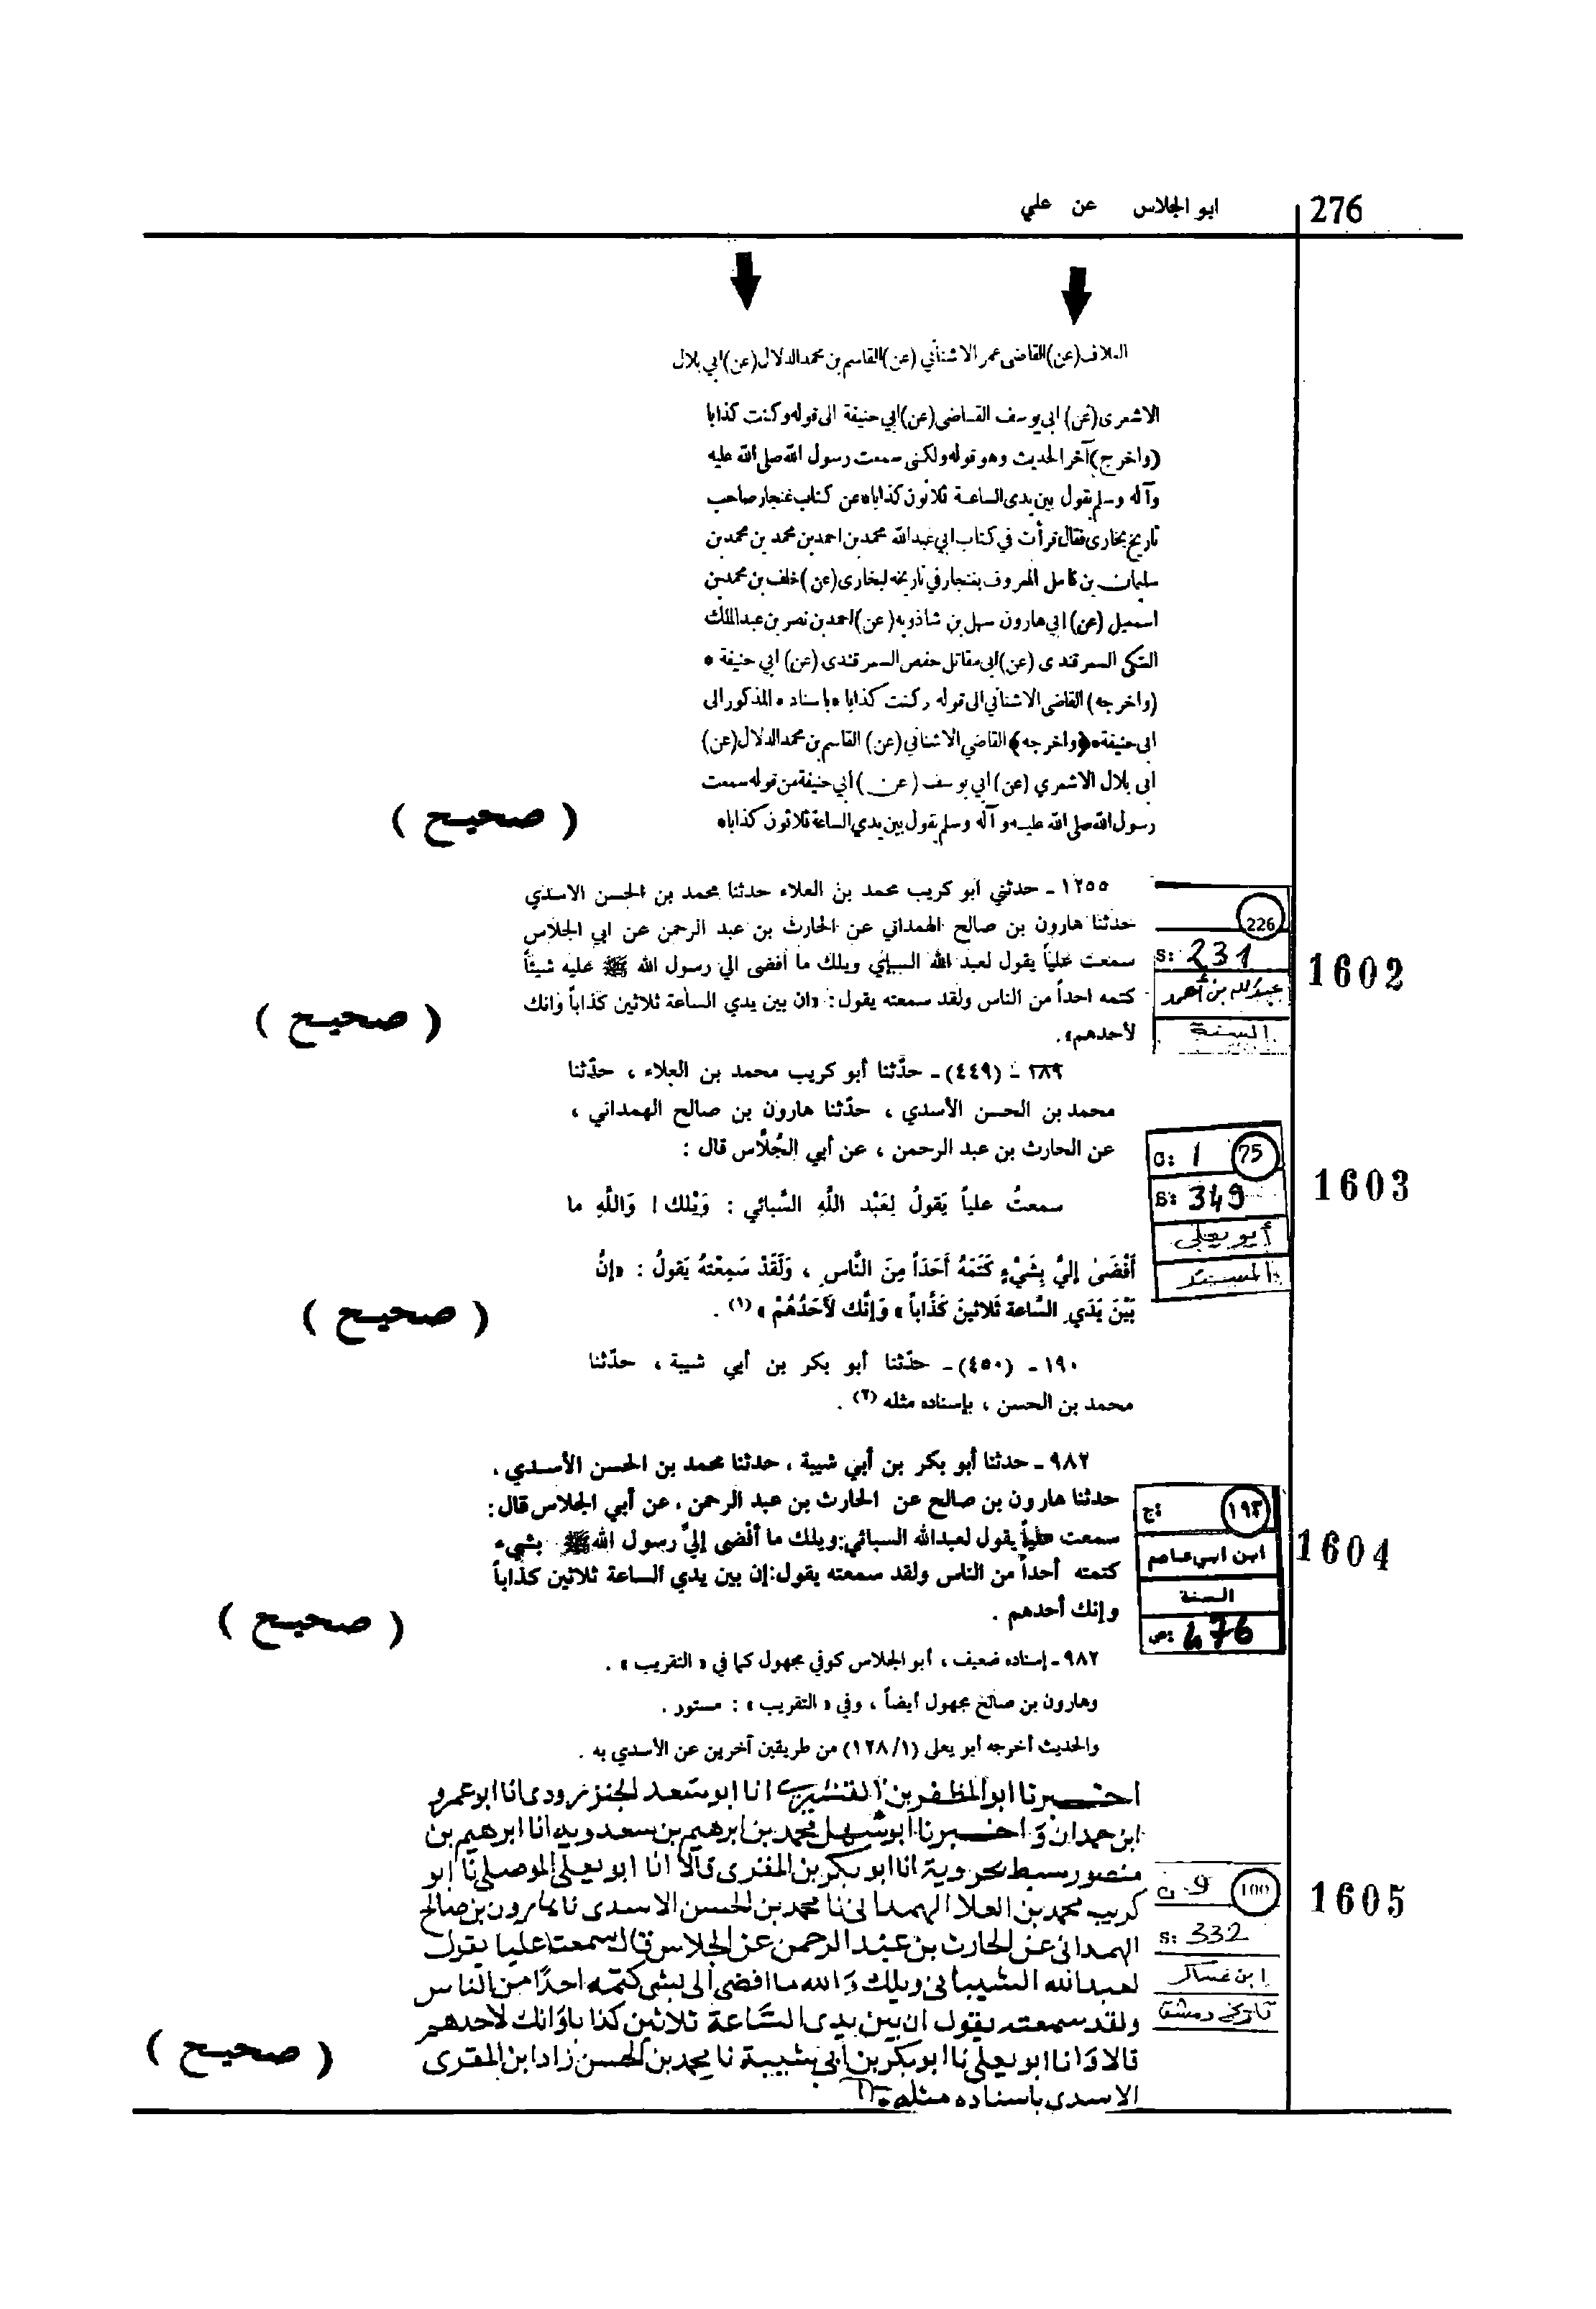 276
ابو الجلاس عن علي
العلاف (عن) القاضى عمر الاشناني (عن) القاسم بن محمد الدلال (عن) ابي بلال
الاشعرى (عن) ابى يوسف القاضى (عن) ابي حنيفة الى قوله وكنت كذابا
(واخرج) آخر الحديث وهو قوله ولكنى سمعت رسول الله صلى الله عليه
وآله وسلم يقول بين يدى الساعة ثلاثون كذابا* عن كتاب غنجار صاحب
تاريخ بخارى فقال قرأت في كتاب ابي عبد الله محمد بن احمد بن محمد بن محمد بن
سليمان بن كامل المعروف بغنجار في تاريخه لبخارى (عن) خلف بن محمد بن
اسمعيل (عن) ابي هارون سهل بن شاذويه (عن) احمد بن نصر بن عبد الملك
السمرقندى (عن) ابى مقاتل حفص السمرقندى (عن) ابي حنيفة *
(واخرجه) القاضى الاشناني الى قوله وكنت كذابا * باسناده المذكور الى
ابى حنيفة* (واخرجه) القاضي الاشناني (عن) القاسم بن محمد الدلال (عن)
ابى بلال الاشعري (عن) ابي يوسف (عن) ابي حنيفة من قوله سمعت
رسول الله صلى الله عليه وآله وسلم يقول بين يدي الساعة ثلاثون كذابا*
( صحيح )
١٢٥٥ ـ حدثني ابو كريب محمد بن العلاء حدثنا محمد بن الحسن الاسدي
حدثنا هارون بن صالح الهمداني عن الحارث بن عبد الرحمن عن ابي الجلاس
سمعت علياً يقول لعبد الله السبائي ويلك ما أفضى الي رسول الله ﷺ عليه شيئاً
كتمه احداً من الناس ولقد سمعته يقول: «ان بين يدي الساعة ثلاثين كذاباً وانك
لأحدهم».
( صحيح )
226
S: 231
عبدالله بن أحمد
السنة
1602
١٨٩ ـ (٤٤٩) ـ حدّثنا أبو كريب محمد بن العلاء ، حدّثنا
محمد بن الحسن الأسدي ، حدّثنا هارون بن صالح الهمداني ،
عن الحارث بن عبد الرحمن ، عن أبي الجُلَّاس قال :
سمعتُ علياً يَقولُ لِعَبْد اللَّهِ السَّبائي : وَيْلك ! وَاللَّهِ ما
أَفْضَىٰ إليَّ بِشَيْءٍ كَتَمَهُ أَحَدَاً مِنَ النَّاسِ ، وَلَقَدْ سَمِعْتهُ يَقولُ : «إنَّ
بَيْنَ يَدَي السَّاعة ثَلاثينَ كَذَّاباً » وَإنَّك لأَحَدُهُمْ » (١) .
( صحيح )
١٩٠ ـ (٤٥٠) ـ حدّثنا أبو بكر بن أبي شيبة ، حدّثنا
محمد بن الحسن ، بإسناده مثله (٢) .
75
G: 1
S: 349
أبو يعلى
المسند
1603
٩٨٢ ـ حدثنا أبو بكر بن أبي شيبة ، حدثنا محمد بن الحسن الأسدي ،
حدثنا هارون بن صالح عن الحارث بن عبد الرحمن ، عن أبي الجلاس قال :
سمعت علياً يقول لعبدالله السبائي : ويلك ما أفضى إليّ رسول الله ﷺ بشيء
كتمته أحداً من الناس ولقد سمعته يقول : إن بين يدي الساعة ثلاثين كذاباً
وإنك أحدهم .
( صحيح )
١٩٣
ج:
ابن ابي عاصم
السنة
ص: 476
1604
٩٨٢ ـ إسناده ضعيف ، أبو الجلاس كوفي مجهول كما في « التقريب » .
وهارون بن صالح مجهول أيضاً ، وفي « التقريب » : مستور .
والحديث أخرجه أبو يعلى (١/ ١٢٨) من طريقين آخرين عن الأسدي به .
اخبرنا ابو المظفر بن القشيري انا ابو سعد الجنزرودى انا ابو عمرو
ابن حمدان وَاخبرنا ابو سهل محمد بن ابرهيم بن سعدويه انا ابرهيم بن
منصور سبط بحروية انا ابو بكر بن المقرى قالا انا ابو يعلى الموصلي نا ابو
كريب محمد بن العلا الهمدانى نا محمد بن الحسن الاسدى نا هارون بن صالح
الهمدانى عن الحارث بن عبد الرحمن عن الجلاس قال سمعت عليا يقول
لعبد الله الشيبانى ويلك وَالله ما افضى الى بشى كتمه احدًا من الناس
ولقد سمعته يقول ان بين يدى السَّاعة ثلاثين كذابا وَانك لاحدهم
قالا وَانا ابو يعلى نا ابو بكر بن ابي شيبة نا محمد بن الحسن زاد ابن المقرى
الاسدى باسناده مثله
( صحيح )
100
G: 9
S: 332
ابن عساكر
تاريخ دمشق
1605